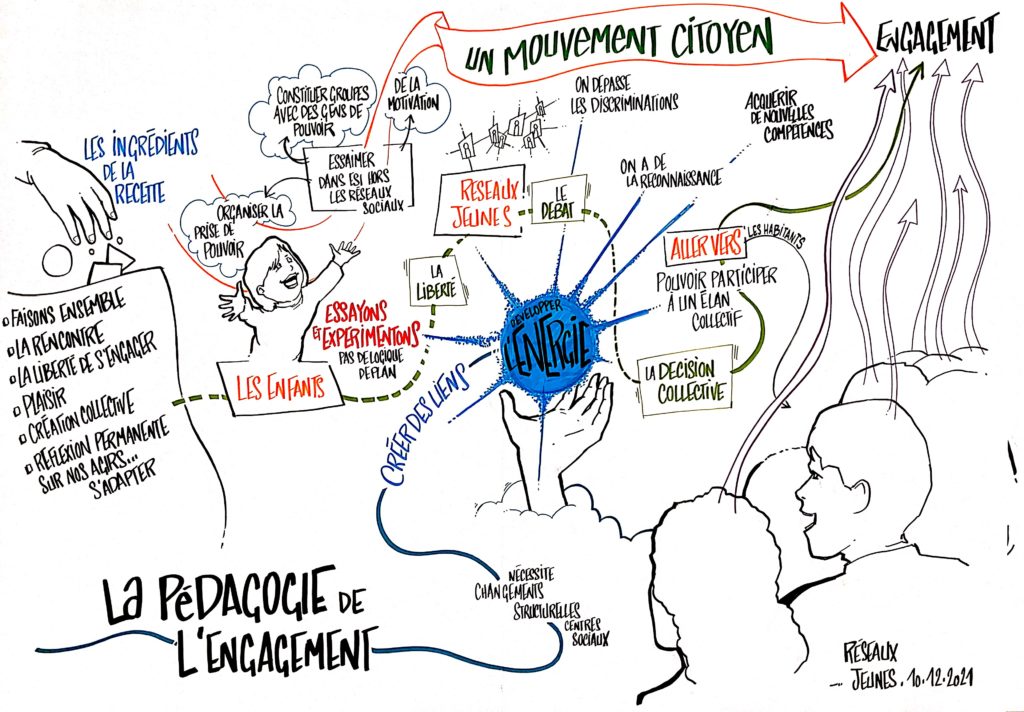 UN MOUVEMENT CITOYEN
ENGAGEMENT
LES INGRÉDIENTS
DE LA
RECETTE
CONSTITUER GROUPES
AVEC DES GENS DE
POUVOIR
DE LA
MOTIVATION
ESSAIMER
DANS ESI HORS
LES RÉSEAUX
SOCIAUX
ORGANISER LA
PRISE DE
POUVOIR
FAISONS ENSEMBLE
LA RENCONTRE
LA LIBERTÉ DE S'ENGAGER
PLAISIR
CRÉATION COLLECTIVE
REFLEXION PERMANENTE
SUR NOS AGIRS...
S'ADAPTER
LES ENFANTS
ESSAYONS
ET EXPERIMENTONS
PAS DE LOGIQUE
DE PLAN
LA
LIBERTÉ
RÉSEAUX
JEUNES
LE
DÉBAT
ON DÉPASSE
LES DISCRIMINATIONS
ON A DE
LA RECONNAISSANCE
ACQUERIR
DE NOUVELLES
COMPETENCES
DEVELOPPER
L'ÉNERGIE
ALLER VERS
LES HABITANTS
POUVOIR PARTICIPER
À UN ÉLAN
COLLECTIF
LA DECISION
COLLECTIVE
CRÉER DES LIENS
NÉCESSITE
CHANGEMENTS
STRUCTURELLES
CENTRES
SOCIAUX
LA PéDAGOGIE DE
L'ENGAGEMENT
RÉSEAUX
... JEUNES. 10.12.2021